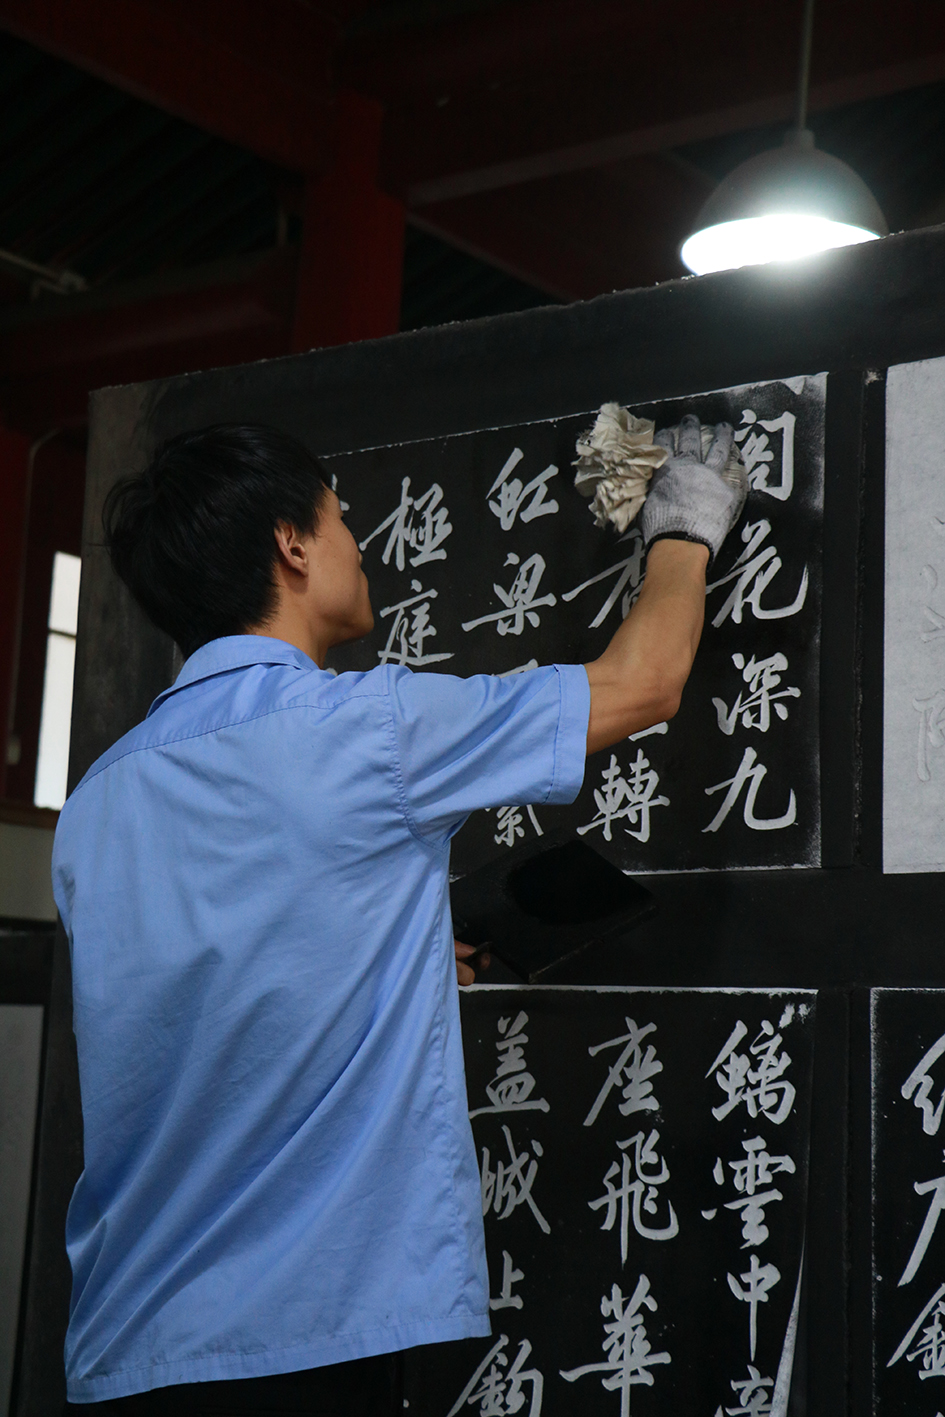 閣花深九
香轉
虹梁
極庭
螭雲中
座飛華
蓋城上鈎